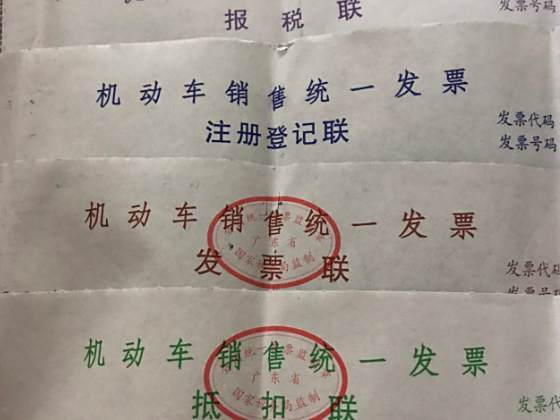 报税联
发票号码
机动车销售统一发票
注册登记联
发票代码
发票号码
机动车销售统一发票
发票联
发票代码
发票号码
广东省
机动车销售统一发票
抵扣联
发票代
广东省